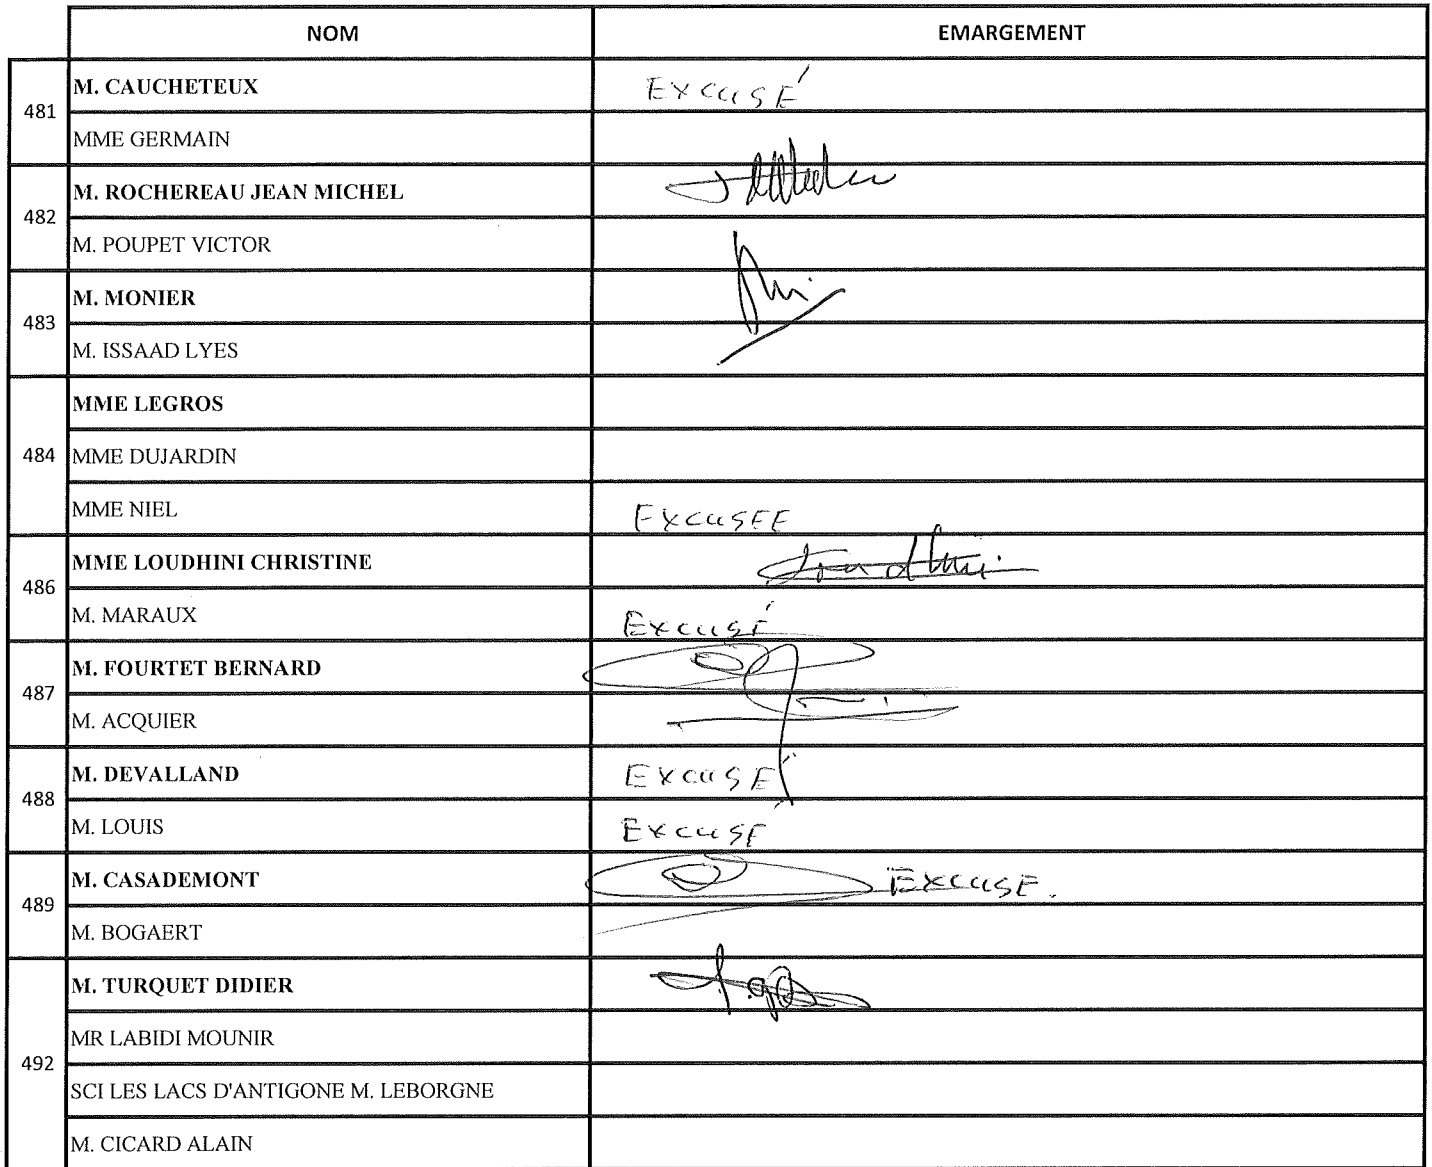 NOM EMARGEMENT
481 M. CAUCHETEUX EXCUSÉ
MME GERMAIN
482 M. ROCHEREAU JEAN MICHEL
M. POUPET VICTOR
483 M. MONIER
M. ISSAAD LYES
MME LEGROS
484 MME DUJARDIN
MME NIEL EXCUSEE
486 MME LOUDHINI CHRISTINE Loudhini
M. MARAUX EXCUSÉ
487 M. FOURTET BERNARD
M. ACQUIER
488 M. DEVALLAND EXCUSÉ
M. LOUIS EXCUSÉ
489 M. CASADEMONT EXCUSE.
M. BOGAERT
492 M. TURQUET DIDIER
MR LABIDI MOUNIR
SCI LES LACS D'ANTIGONE M. LEBORGNE
M. CICARD ALAIN